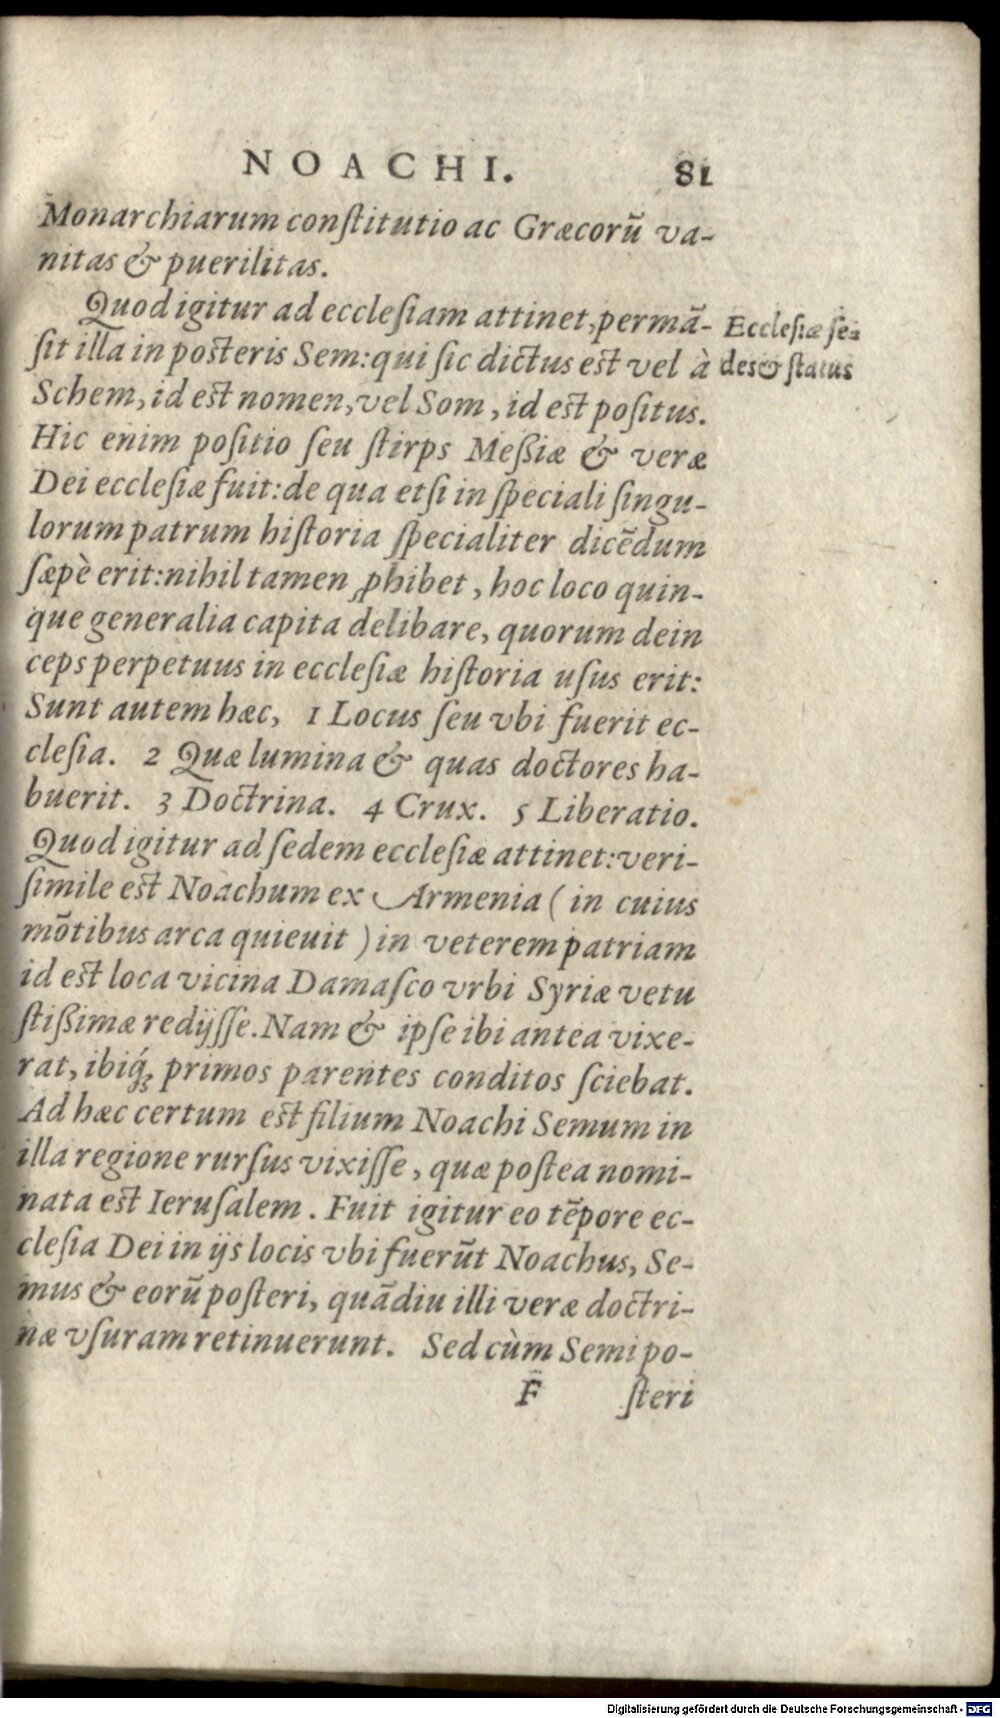 NOACHI. 81
Monarchiarum conſtitutio ac Græcorũ va-
nitas & puerilitas.
Quod igitur ad eccleſiam attinet, permã-
ſit illa in poſteris Sem: qui ſic dictus eſt vel à
Schem, id eſt nomen, vel Som, id eſt poſitus.
Hic enim poſitio ſeu ſtirps Meßiæ & veræ
Dei eccleſiæ fuit: de qua etſi in ſpeciali ſingu-
lorum patrum hiſtoria ſpecialiter dicẽdum
ſæpè erit: nihil tamen ꝓhibet, hoc loco quin-
que generalia capita delibare, quorum dein
ceps perpetuus in eccleſiæ hiſtoria uſus erit:
Sunt autem hæc, 1 Locus ſeu vbi fuerit ec-
cleſia. 2 Quæ lumina & quas doctores ha-
buerit. 3 Doctrina. 4 Crux. 5 Liberatio.
Quod igitur ad ſedem eccleſiæ attinet: veri-
ſimile eſt Noachum ex Armenia ( in cuius
mõtibus arca quieuit ) in veterem patriam
id eſt loca vicina Damaſco vrbi Syriæ vetu
ſtißimæ redijſſe. Nam & ipſe ibi antea vixe-
rat, ibiq́ꝫ primos parentes conditos ſciebat.
Ad hæc certum eſt filium Noachi Semum in
illa regione rurſus vixiſſe, quæ poſtea nomi-
nata eſt Ieruſalem. Fuit igitur eo tẽpore ec-
cleſia Dei in ijs locis vbi fuerũt Noachus, Se-
mus & eorũ poſteri, quãdiu illi veræ doctri-
næ vſuram retinuerunt. Sed cùm Semi po-
F ſteri
Eccleſiæ ſe-
des & ſtatus
Digitalisierung gefördert durch die Deutsche Forschungsgemeinschaft - DFG